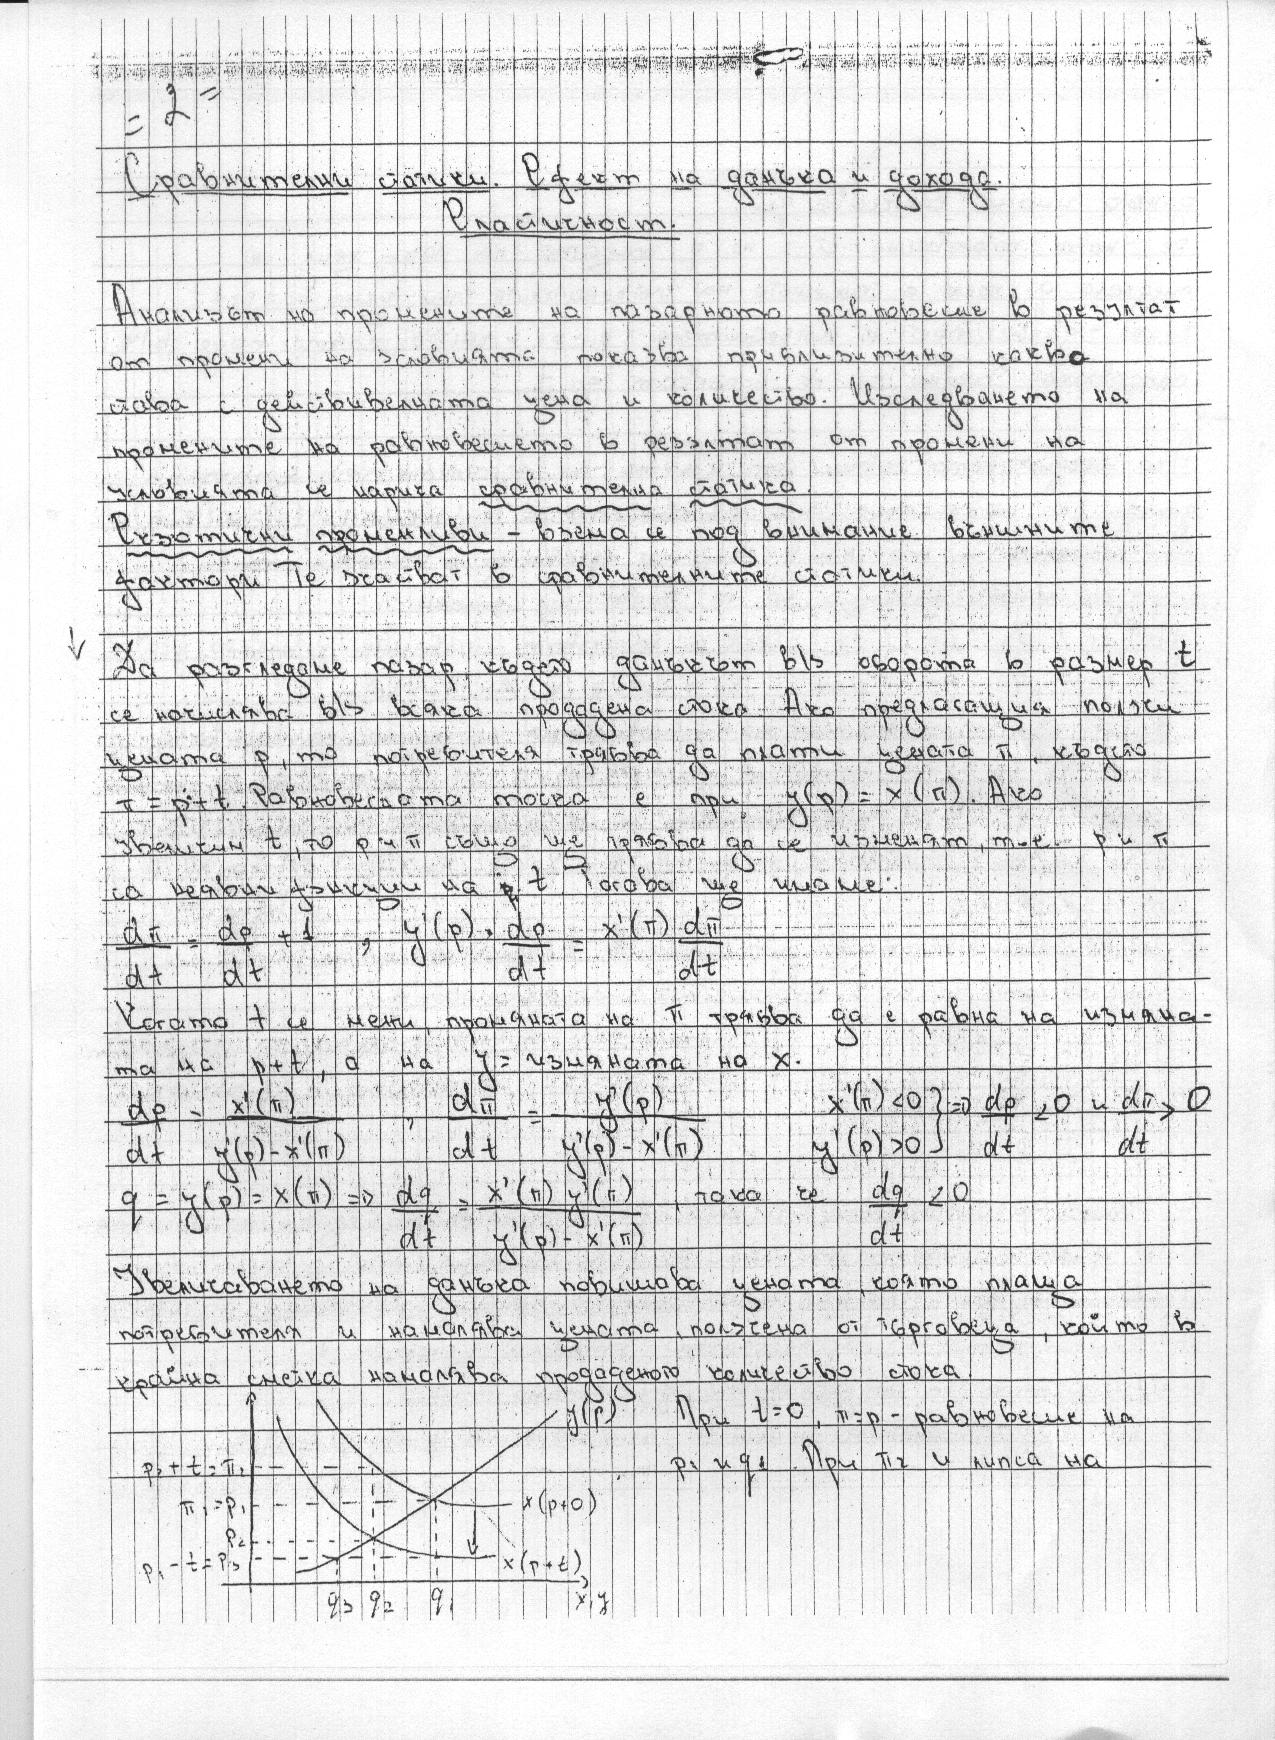 = 2 =
Сравнителни статики. Ефект на данъка и дохода.
Еластичност.
Анализът на промените на пазарното равновесие в резултат
от промени на условията показва приблизително какво
става с действителната цена и количество. Изследването на
промените на равновесието в резултат от промени на
условията се нарича сравнителна статика.
Екзотични променливи - взема се под внимание външните
фактори Те участват в сравнителните статики.
↓ Да разгледаме пазар, където данъкът в/у оборота в размер t
се начислява в/у всяка продадена стока Ако предлагащия получи
цената p, то потребителя трябва да плати цената π, където
π = p + t. Равновесната точка е при y(p) = x(π). Ако
увеличим t, то p и π също ще трябва да се изменят, т.е. p и π
са неявни функции на t Тогава ще имаме:
dπ/dt = dp/dt + 1 , y'(p) . dp/dt = x'(π) dπ/dt
Когато t се мени, промяната на π трябва да е равна на измяна-
та на p+t, а на y = измяната на x.
dp/dt = x'(π)/(y'(p) - x'(π)) , dπ/dt = y'(p)/(y'(p) - x'(π)) x'(π) < 0 y'(p) > 0 } => dp/dt < 0 и dπ/dt > 0
q = y(p) = x(π) => dq/dt = x'(π) y'(π)/(y'(p) - x'(π)) , така че dq/dt < 0
Увеличаването на данъка повишава цената, която плаща
потребителя и намалява цената, получена от търговеца, който в
крайна сметка намалява продаденото количество стока.
y(p) При t=0, π=p - равновесие на
p₂ + t = π₂ p₁ и q₁. При π₂ и липса на
π₁ = p₁ x(p+0)
p₂
p₁ - t = p₃ x(p+t)
q₃ q₂ q₁ x, y